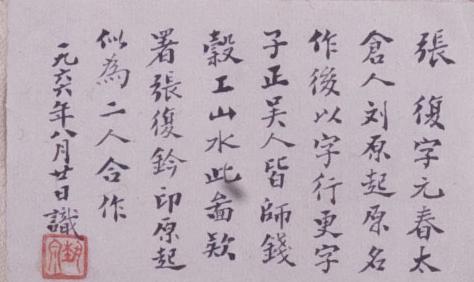 張復字元春太
倉人刘原起原名
作後以字行更字
子正吴人皆師錢
榖工山水此畵欵
署張復鈐印原起
似為二人合作
一九六六年八月廿日識